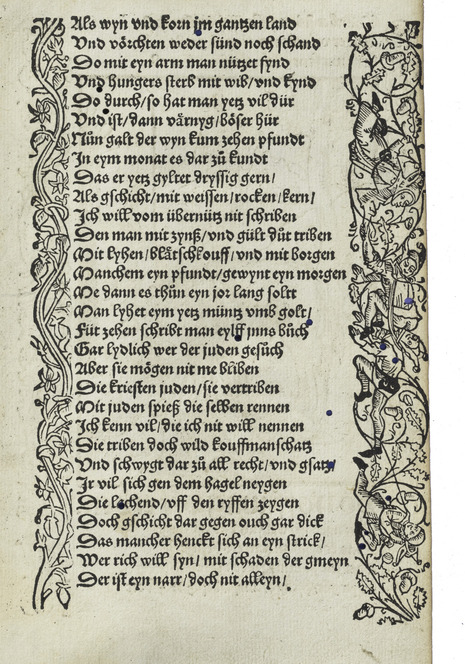 Als wyn vnd korn jm gantzen land
Vnd vörchten weder sünd noch schand
Do mit eyn arm man nützet fynd
Vnd hungers sterb mit wib/vnd kynd
Do durch/so hat man yetz vil dür
Vnd ist/dann värnyg/böser hür
Nůn galt der wyn kum zehen pfundt
In eym monat es dar zů kundt
Das er yetz gyltet dryssig gern/
Als gschicht/mit weissen/rocken/kern/
Ich will vom übernütz nit schriben
Den man mit zynß/vnd gült důt triben
Mit lyhen/blätschkouff/vnd mit borgen
Manchem eyn pfundt/gewynt eyn morgen
Me dann es thůn eyn jor lang soltt
Man lyhet eym yetz müntz vmb golt/
Für zehen schribt man eylff jnns bůch
Gar lydlich wer der juden gesůch
Aber sie mögen nit me bliben
Die kriesten juden/sie vertriben
Mit juden spieß die selben rennen
Ich kenn vil/die ich nit will nennen
Die triben doch wild kouffmanschatz
Vnd schwygt dar zů all recht/vnd gsatz/
Ir vil sich gen dem hagel neygen
Die lachend/vff den ryffen zeygen
Doch gschicht dar gegen ouch gar dick
Das mancher henckt sich an eyn strick/
Wer rich will syn/mit schaden der gmeyn
Der ist eyn narr/doch nit alleyn/